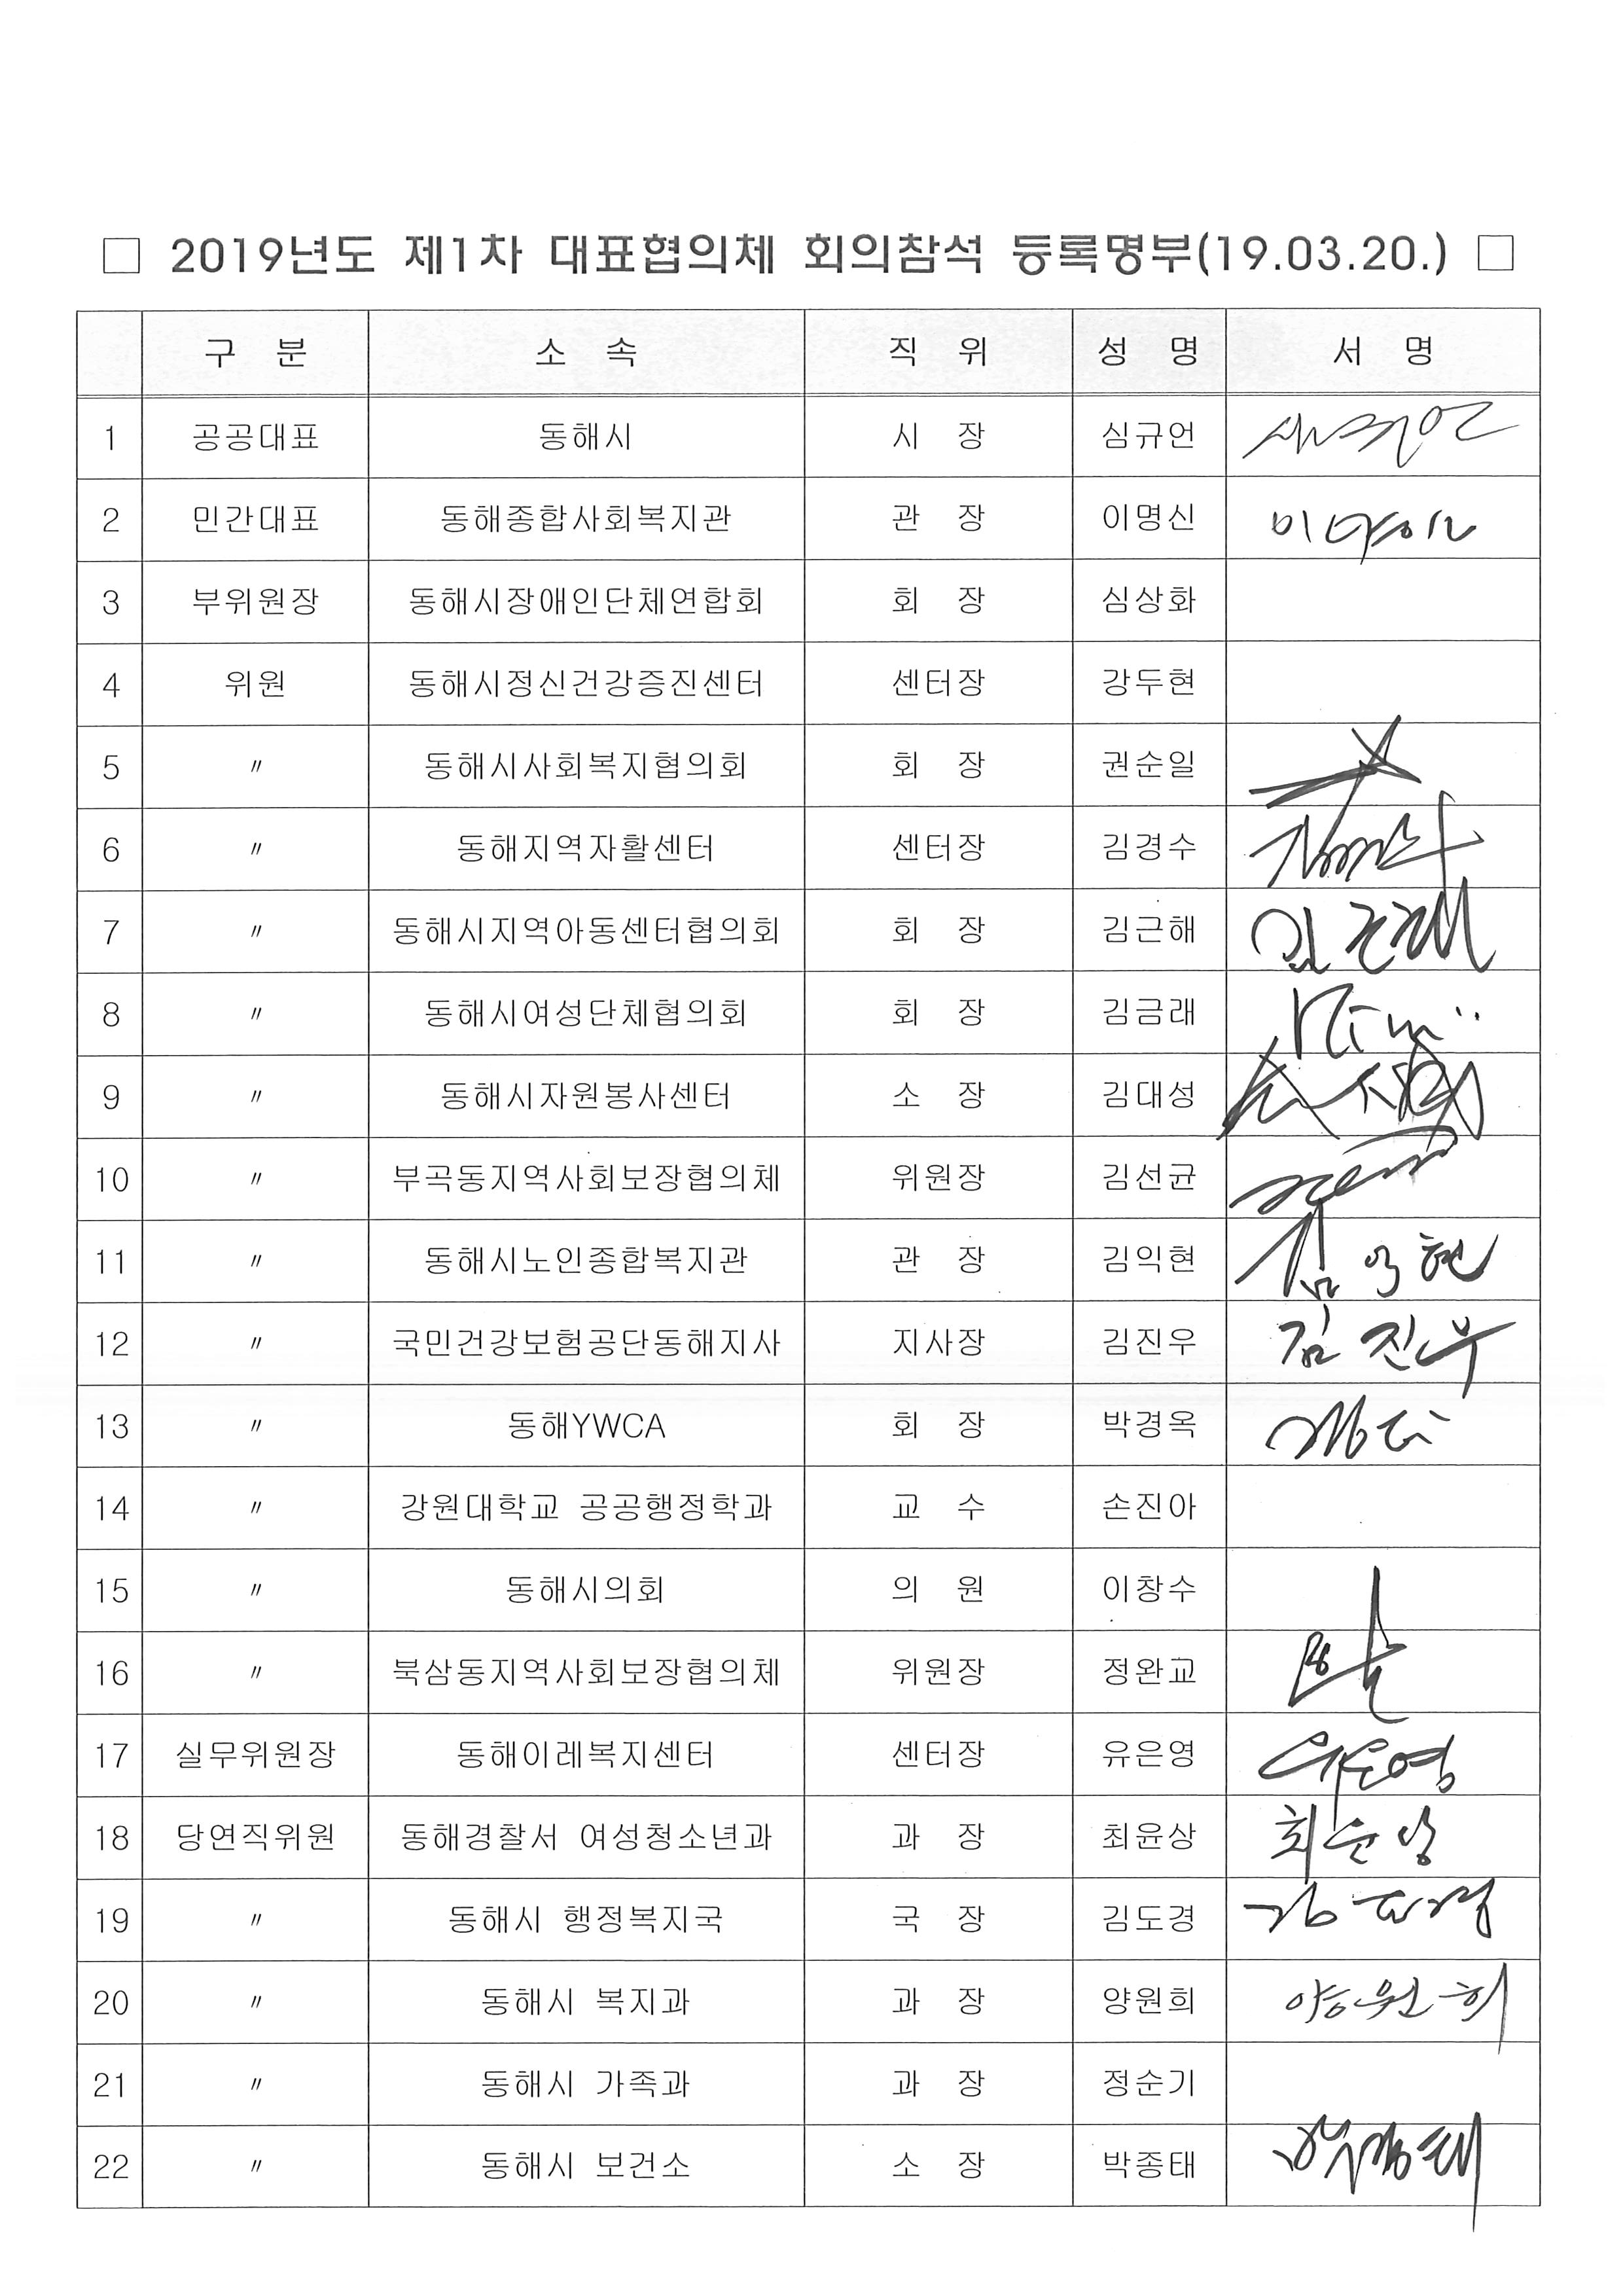 □ 2019년도 제1차 대표협의체 회의참석 등록명부(19.03.20.) □
구 분 소 속 직 위 성 명 서 명
1 공공대표 동해시 시 장 심규언
2 민간대표 동해종합사회복지관 관 장 이명신
3 부위원장 동해시장애인단체연합회 회 장 심상화
4 위원 동해시정신건강증진센터 센터장 강두현
5 〃 동해시사회복지협의회 회 장 권순일
6 〃 동해지역자활센터 센터장 김경수
7 〃 동해시지역아동센터협의회 회 장 김근해
8 〃 동해시여성단체협의회 회 장 김금래
9 〃 동해시자원봉사센터 소 장 김대성
10 〃 부곡동지역사회보장협의체 위원장 김선균
11 〃 동해시노인종합복지관 관 장 김익현 김익현
12 〃 국민건강보험공단동해지사 지사장 김진우 김진우
13 〃 동해YWCA 회 장 박경옥
14 〃 강원대학교 공공행정학과 교 수 손진아
15 〃 동해시의회 의 원 이창수
16 〃 북삼동지역사회보장협의체 위원장 정완교
17 실무위원장 동해이레복지센터 센터장 유은영 유은영
18 당연직위원 동해경찰서 여성청소년과 과 장 최윤상 최윤상
19 〃 동해시 행정복지국 국 장 김도경 김도경
20 〃 동해시 복지과 과 장 양원희 양원희
21 〃 동해시 가족과 과 장 정순기
22 〃 동해시 보건소 소 장 박종태 박종태